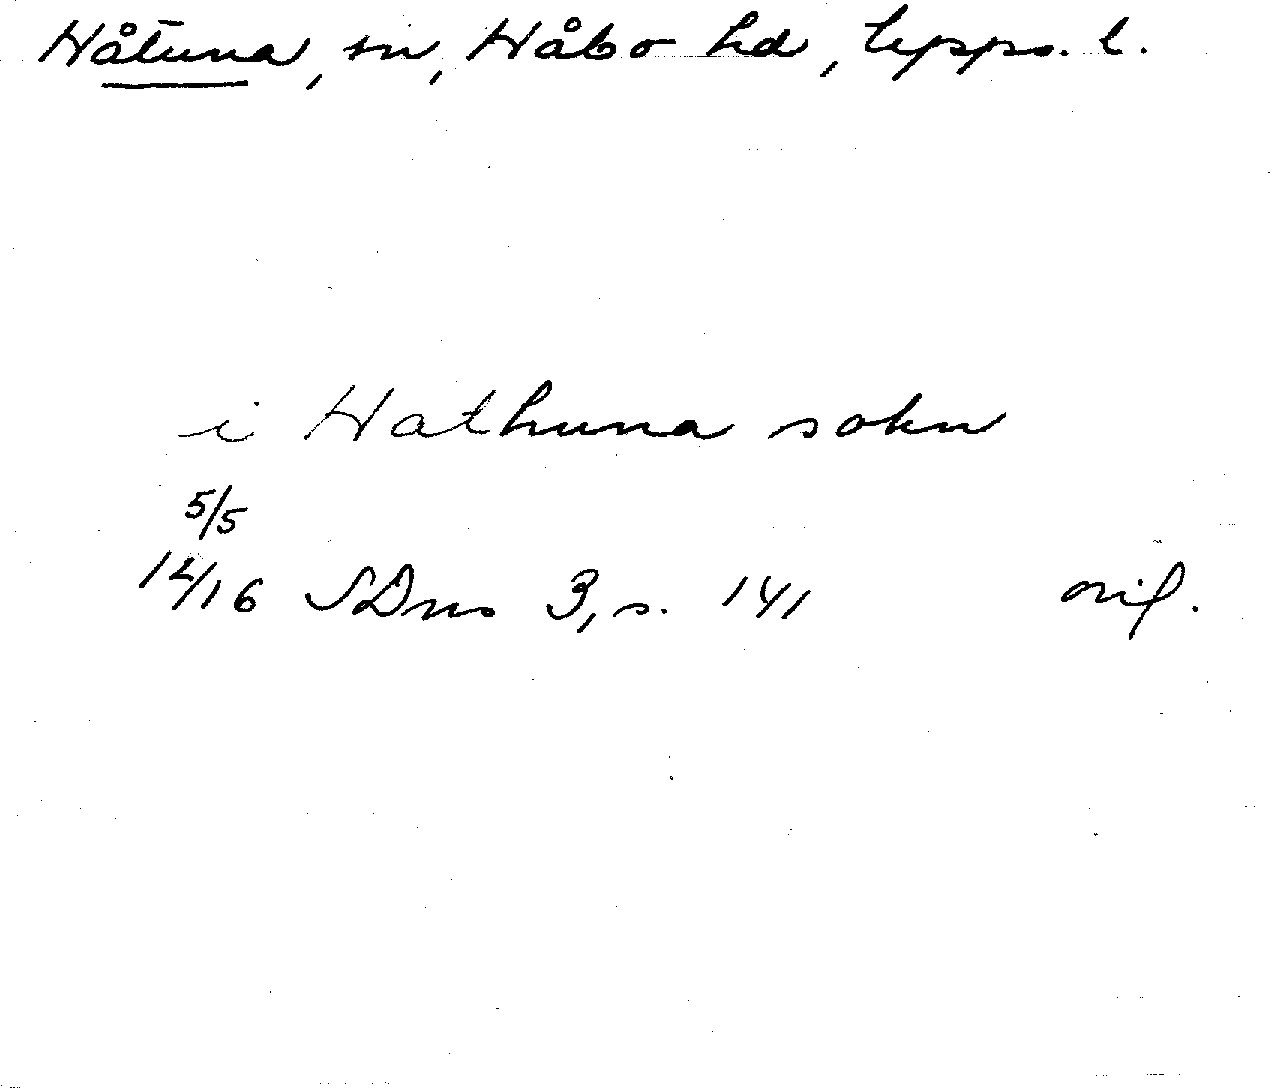 Håtuna, sn, Håbo hd, Upps. l.
i Hathuna sokn
5/5
1416 SDns 3, s. 141 orig.